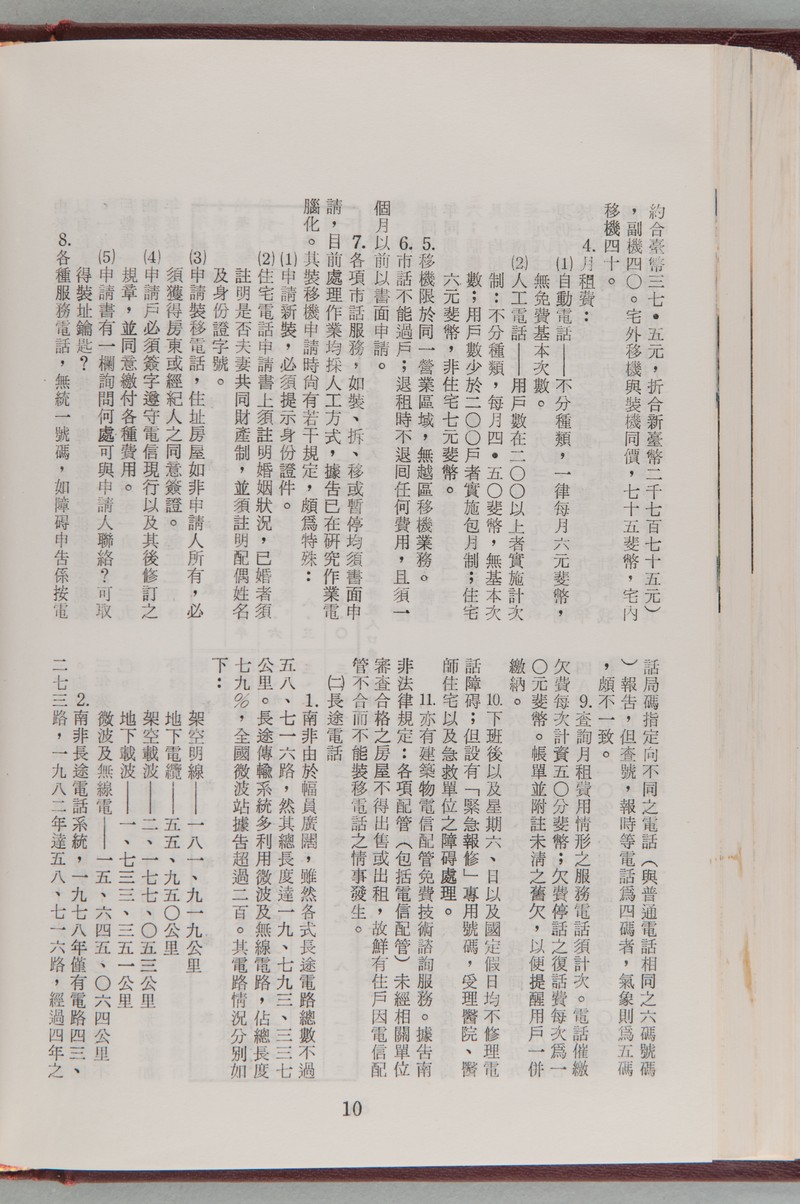 約合臺幣三七•五元，折合新臺幣二千七百七十五元）
，副機四〇。宅外移機與裝機同價，七十五斐幣，宅內
移機四十。
4.月租費：
(1)自動電話——不分種類，一律每月六元斐幣，
無免費基本次數。
(2)人工電話——用戶數在二〇〇以上者實施計次
制：不分種類，每月四•五〇斐幣，無基本次
數；用戶數少於二〇〇戶者實施包月制；住宅
六元斐幣，非住宅七元斐幣。
5.移機限於同一營業區域，無越區移機業務。
6.市話不能過戶；退租時不退回任何費用，且須一
個月以前以書面申請。
7.各項市話服務，如裝、拆、移或暫停均須書面申
請，目前處理作業均採人工方式，據告已在研究作業電
腦化。其裝移機申請時尙有若干規定，頗爲特殊：
(1)申請新裝，必須提示身份證件。
(2)住宅電話申請書上須註明婚姻狀況，已婚者須
註明是否夫妻共同財產制，並須註明配偶姓名
及身份證字號。
(3)申請裝移電話，住址房屋如非申請人所有，必
須獲得房東或經紀人之同意簽證。
(4)申請戶必須簽字遵守電信現行以及其後修訂之
規章，並同意繳付各種費用。
(5)申請書有一欄詢問何處可與申請人聯絡？可取
得裝址鑰匙？
8.各種服務電話，無統一號碼，如障碍申告係按電
話局碼指定向不同之電話（與普通電話相同之六碼號碼
）報告，但查號，報時等電話爲四碼者，氣象則爲五碼
，頗不一致。
9.查詢月租費用情形之服務電話須計次。電話催繳
欠費每次計資五〇分斐幣；欠費停話之復話費每次爲一
〇元斐幣。帳單並附註未淸之舊欠，以便提醒用戶一併
繳納。
10.下班後以及星期六、日以及國定假日均不修理電
話障碍；但設有「緊急報修」專用號碼，受理醫院、醫
師住宅以及急救單位之障碍處理。
11.亦有建築物電信配管免費技術諮詢服務。據告南
非法律規定：各項配管（包括電信配管）未經相關單位
審查合格之房屋不得出售或出租，故鮮有住戶因電信配
管不合而不能裝移電話之情事發生。
㈡長途電話
1.南非由於幅員廣闊，雖然各式長途電路總數不過
五八、七一六路，然其總長度達一九、七九三、三三七
公里。長途傳輸系統多利用微波及無線電路，佔總長度
七九％，全國微波站據告超過二百。其電路情況分別如
下：
架空明線——一八一、九一九公里
地下電纜——五五、九五〇公里
架空載波——二、一七七、〇五三公里
地下載波——一、七三三、三五一公里
微波及無線電——一五、六四五、〇六四公里
2.南非長途電話系統，一九七八年僅有電路四三、
二七三路，一九八二年達五八、七一六路，經過四年之
10